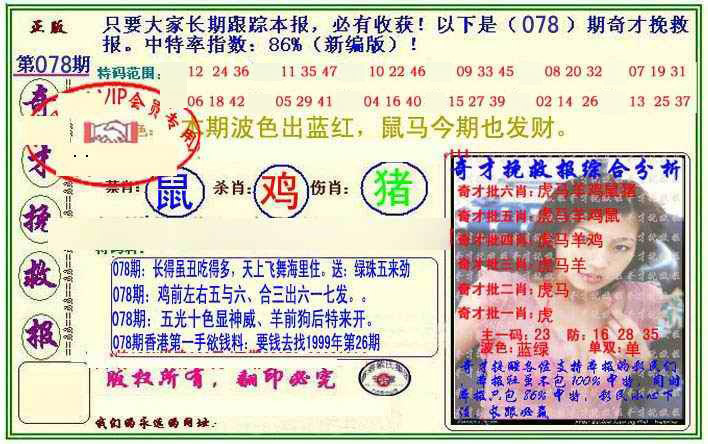 正版
只要大家长期跟踪本报，必有收获！以下是（078）期奇才挽救
报。中特率指数：86%（新编版）！
第078期
特码范围：
12 24 36 11 35 47 10 22 46 09 33 45 08 20 32 07 19 31
06 18 42 05 29 41 04 16 40 15 27 39 02 14 26 13 25 37
奇才挽救报
VIP会员专用
色：本期波色出蓝红，鼠马今期也发财。
禁肖：鼠 杀肖：鸡 伤肖：猪
078期：长得虽丑吃得多，天上飞舞海里住。送：绿珠五来劲
078期：鸡前左右五与六、合三出六一七发。。
078期：五光十色显神威、羊前狗后特来开。
078期香港第一手欲钱料：要钱去找1999年第26期
版权所有，翻印必究
我们的永远的网址：
奇才挽救报综合分析
奇才批六肖：虎马羊鸡鼠猪
奇才批五肖：虎马羊鸡鼠
奇才批四肖：虎马羊鸡
奇才批三肖：虎马羊
奇才批二肖：虎马
奇才批一肖：虎
主一码：23 防：16 28 35
波色：蓝绿 单双：单
奇才挽救各位支持本报的彩民们
本报虽不包100%中特，但时
本报只包86%中特，彩民小心下
注，长跟必赢